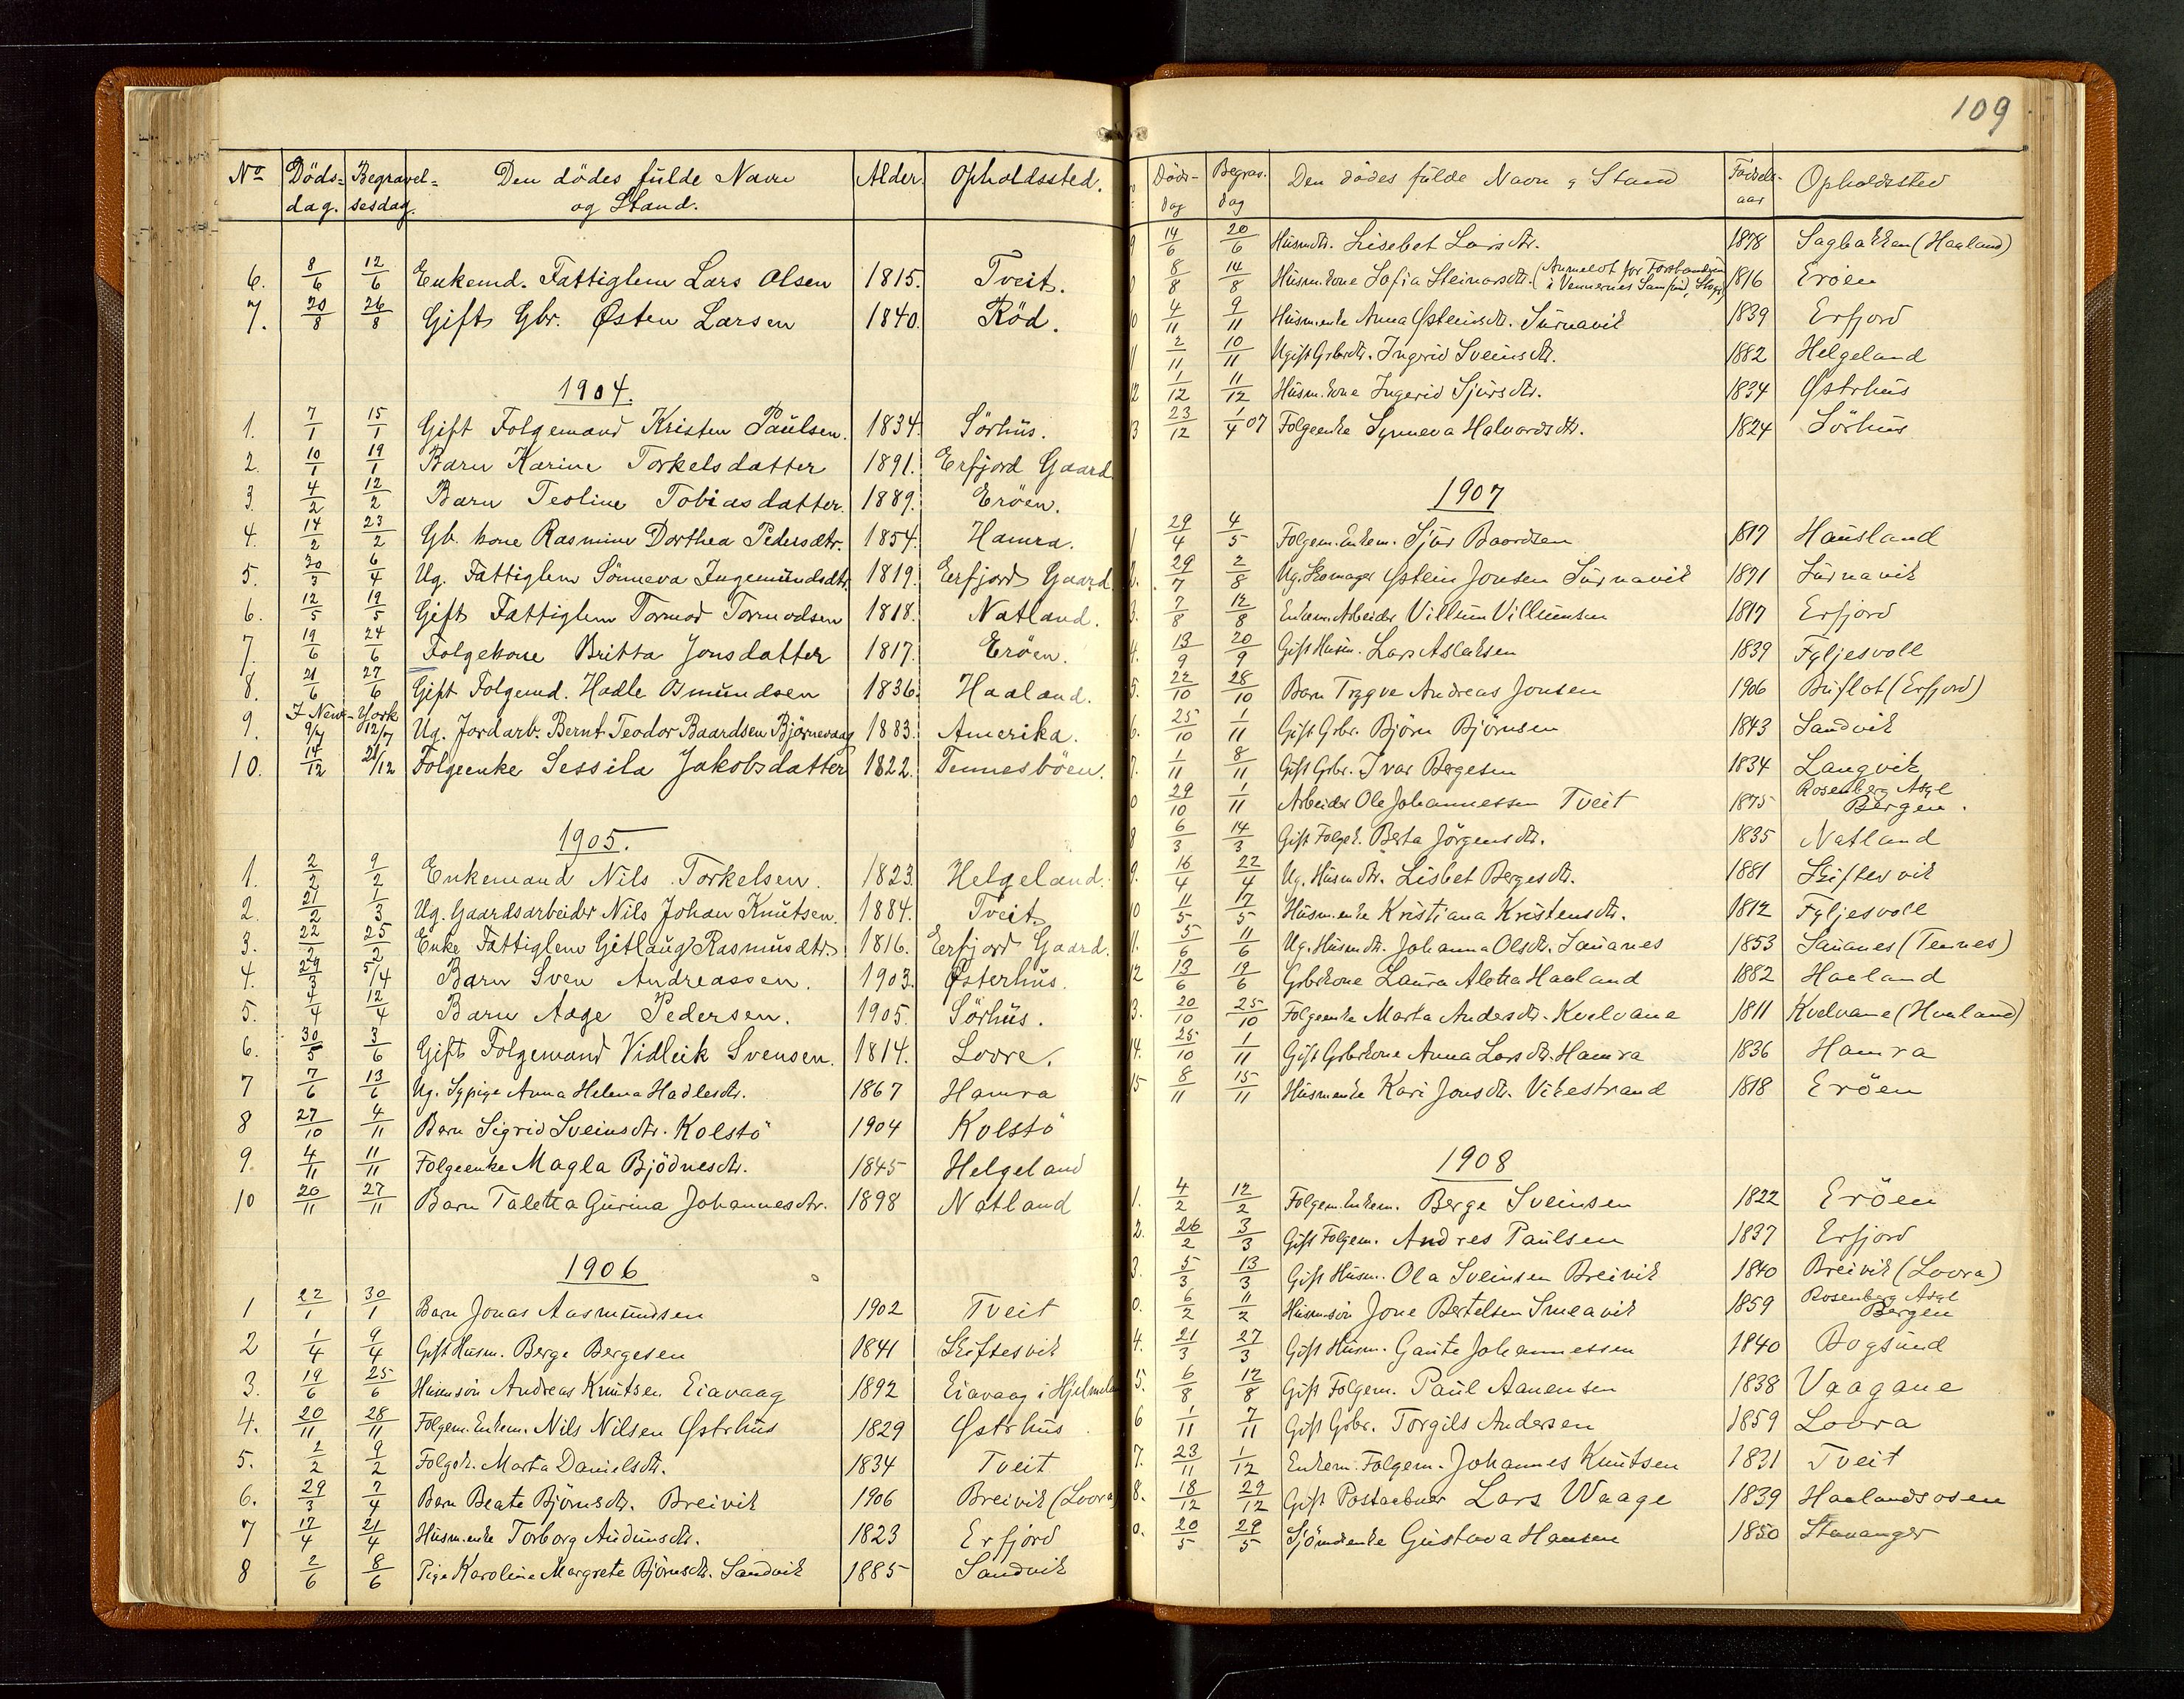 No Döds- Begravel- Den dödes fulde Navn Alder. Opholdssted.
dag. sesdag. og Stand.
6. 8/6 12/6 Enkemd. Fattiglem Lars Olsen 1815. Tveit.
7. 20/8 26/8 Gift Gbr. Østen Larsen 1840. Röd.
1904.
1. 7/1 15/1 Gift Folgemand Kristen Paulsen. 1834. Sörhus.
2. 10/1 19/1 Barn Karine Torkelsdatter 1891. Erfjord Gaard
3. 4/2 12/2 Barn Teoline Tobiasdatter. 1889. Eröen.
4. 14/2 23/2 Gb. kone Rasmine Dorthea Pedersdtr. 1854. Hamra.
5. 30/3 6/4 Ug. Fattiglem Sönneva Ingemundsdtr. 1819. Eerfjord Gaard
6. 12/5 19/5 Gift Fattiglem Tormod Tormodsen 1818. Natland.
7. 19/6 24/6 Folgekone Britta Jonsdatter 1817. Eröen.
8. 21/6 27/6 Gift Folgemd. Hadle Osmundsen 1836. Haaland.
I New-York
9. 9/7 12/7 Ug. Jordarb. Bernt Teodor Baardsen Björnevaag 1883. Amerika.
10. 14/12 21/12 Folgeenke Sessila Jakobsdatter 1822. Tennesböen.
1905.
1. 2/2 9/2 Enkemand Nils Torkelsen. 1823. Helgeland.
2. 21/2 1/3 Ug. Gaardsarbeider Nils Johan Knutsen. 1884. Tveit.
3. 22/2 25/2 Enke Fattiglem Gitlaug Rasmusdtr. 1816. Eerfjord Gaard.
4. 29/3 5/4 Barn Sven Andreassen. 1903. Østerhus.
5. 4/4 12/4 Barn Aage Pedersen. 1905. Sörhus.
6. 30/5 3/6 Gift Folgemand Vidleik Svensen. 1814. Lovre.
7 7/6 13/6 Ug. Sypige Anna Helena Hadlesdtr. 1867 Hamra
8 27/10 4/11 Barn Sigrid Sveinsdtr. Kolstö 1904 Kolstö
9. 4/11 11/11 Folgeenke Magla Bjödnesdtr. 1845 Helgeland
10 20/11 27/11 Barn Taletta Gurina Johannesdtr. 1898 Natland
1906
1 22/1 30/1 Barn Jonas Aasmundsen 1902 Tveit
2 1/4 9/4 Gift Husm. Berge Bergesen 1841 Skiftesvik
3. 19/6 25/6 Husmsön Andreas Knutsen Eiavaag 1892 Eiavaag i Hjelmeland
4. 20/11 28/11 Folgem. Enkem. Nils Nilsen Østrhus 1829 Østrhus
5. 2/2 9/2 Folgek. Marta Danielsdtr. 1834 Tveit
6. 29/3 7/4 Barn Beate Björnsdtr. Breivik 1906 Breivik (Lovra
7 17/4 21/4 Husm.enke Torborg Audunsdtr. 1823 Erfjord
8 2/6 8/6 Pige Karoline Margrete Björnsdtr. Sandvik 1885 Sandvik
109
Döds- Begrav. Den dödes fulde Navn & Stand Födsels- Opholdssted
dag dag aar
9 14/6 20/6 Husmdtr. Lisebet Larsdtr. 1878 Sagbakken (Haaland)
8/8 14/8 Husm.kone Sofia Steinarsdtr. (Anmeldt for Forstanderen i Vennernes Samfund, 1816 Eröen
10 4/11 9/11 Husm.enke Anna Østeinsdtr. Surnavik 1839 Erfjord
11 2/11 10/11 Ugift Grbrdtr. Ingerid Sveinsdtr. 1882 Helgeland
12 1/12 11/12 Husm.kone Ingerid Sjursdtr. 1834 Østrhus
13 23/12 1/4 07 Folgeenke Synneva Halvardsdtr. 1824 Sörhus
1907
1 29/4 4/5 Folgem. Enkem. Sjur Baardsen 1817 Hausland
2. 29/7 2/8 Ug. Skomager Østein Jonsen Surnavik 1871 Surnavik
3. 7/8 12/8 Enkem. Arbeider Villum Villumsen 1817 Erfjord
4. 13/9 20/9 Gift Husm. Lars Aslaksen 1839 Fyljesvoll
5. 22/10 28/10 Barn Trygve Andreas Jonsen 1906 Buflot (Erfjord)
6. 25/10 1/11 Gift Grbr. Björn Björnsen 1843 Sandvik
7. 1/11 8/11 Gift Grbr. Ivar Bergesen 1834 Langvik
0 29/10 1/11 Arbeider Ole Johannessen Tveit 1875 Rosenberg Asyl Bergen.
8 6/3 14/3 Gift Folgek. Berta Jörgensdtr. 1835 Natland
9. 16/4 22/4 Ug. Husmdtr. Lisbet Bergesdtr. 1881 Skiftesvik
10 11/5 17/5 Husm.enke Kristiana Kristensdtr. 1812 Fyljesvoll
11. 5/6 11/6 Ug. Husmdtr. Johanna Olsdtr. Sauanes 1853 Sauanes (Tennes)
12 13/6 19/6 Grbrkone Laura Aletta Haaland 1882 Haaland
13. 20/10 25/10 Folgeenke Marta Andersdtr. Kvelvane 1811 Kvelvane (Haaland)
14. 25/10 1/11 Gift Grbrkone Anna Larsdtr. Hamra 1836 Hamra
15 8/11 15/11 Husmenke Kari Jonsdtr. Vikestrand 1818 Eröen
1908
1. 4/2 12/2 Folgem. Enkem. Berge Sveinsen 1822 Eröen
2. 26/2 3/3 Gift Folgem. Andres Paulsen 1837 Erfjord
3. 5/3 13/3 Gift Husm. Ola Sveinsen Breivik 1840 Breivik (Lovra)
0. 6/2 11/2 Husmsön Jone Bertelsen Smeavik 1859 Rosenberg Asyl Bergen
4. 21/3 27/3 Gift Husm. Gaute Johannessen 1840 Bogsund
5. 6/8 12/8 Gift Folgem. Paul Aanensen 1838 Vaagane
6 1/11 7/11 Gift Grbr. Torgils Andersen 1859 Lovra
7. 23/11 1/12 Enkem. Folgem. Johannes Knutsen 1831 Tveit
8. 18/12 29/12 Gift Postaabner Lars Waage 1839 Haalandsosen
0. 20/5 29/5 Sjömdenke Gustava Hansen 1850 Stavanger